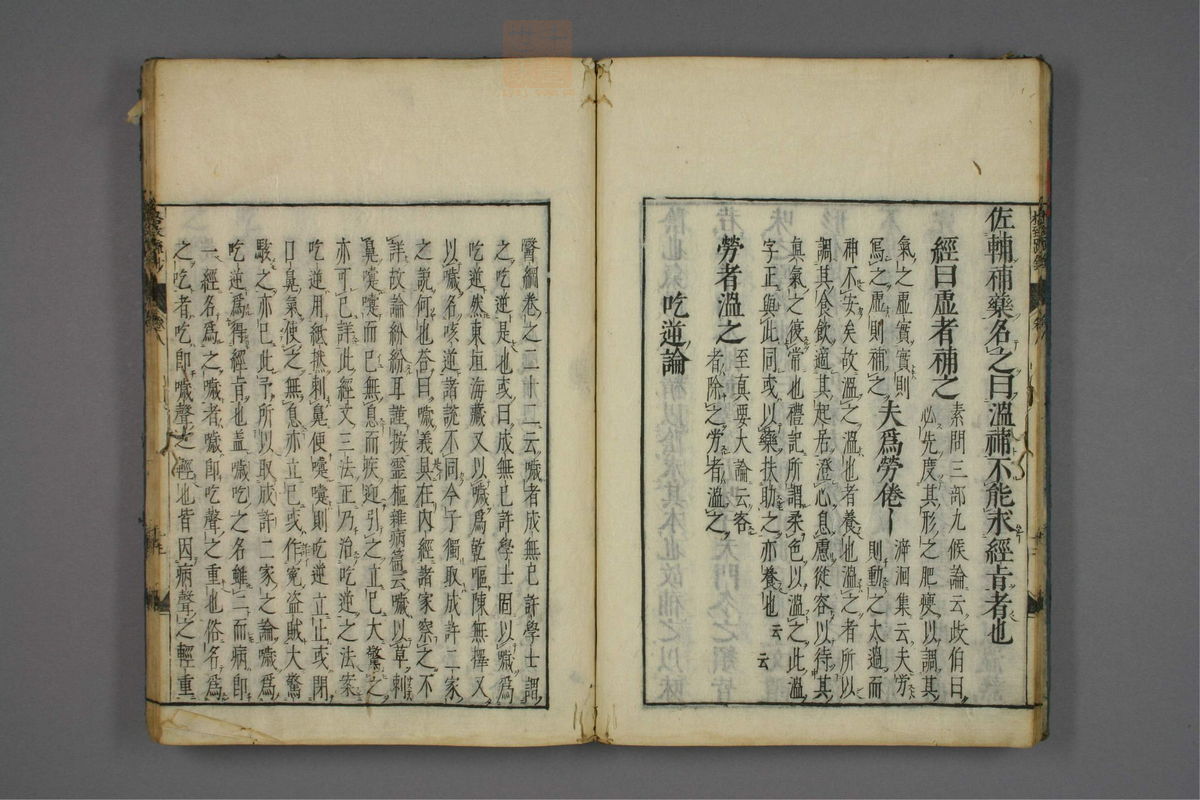 佐輔補藥名之曰溫補不能求經旨者也
經曰虛者補之
素問三部九候論云歧伯曰
必先度其形之肥瘦以調其
氣之虛實實則
寫之虛則補之
夫爲勞倦
溯洄集云夫勞
則動之太過而
神不安矣故溫之溫也者養也溫之者所以
調其食飲適其起居澄心息慮從容以待其
眞氣之復常也禮記所謂柔色以溫之此溫
字正與此同或以藥扶助之亦養也云云
勞者溫之
至眞要大論云客
者除之勞者溫之
吃逆論
醫綱卷之二十二云噦者成無已許學士謂
之吃逆是也或曰成無已許學士固以噦爲
吃逆然東垣海藏又以噦爲乾嘔陳無擇又
以噦名咳逆諸說不同今子獨取成許二家
之說何也荅曰噦義具在內經諸家察之不
詳故論紛紛耳謹按靈樞雜病篇云噦以草刺
鼻嚏嚏而已無息而疾迎引之立已大驚之
亦可已詳此經文三法正乃治吃逆之法案
吃逆用紙撚刺鼻便嚏嚏則吃逆立止或閉
口鼻氣使之無息亦立已或作寃盜賊大驚
駭之亦已此予所以取成許二家之論噦爲
吃逆爲得經旨也盖噦吃之名雖二而病即
一經名爲之噦者噦即吃聲之重也俗名爲
之吃者吃即噦聲之輕也皆因病聲之輕重